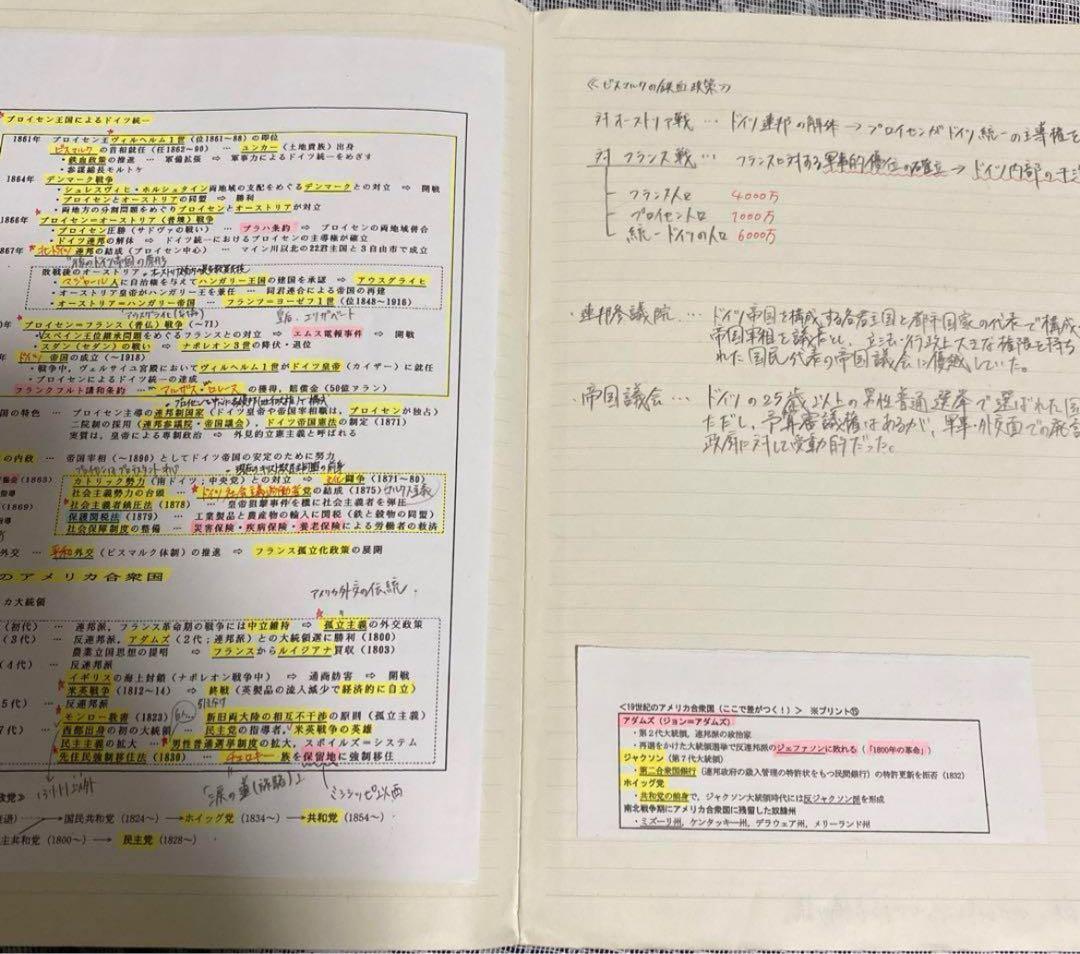 プロイセン王国によるドイツ統一
1861年 プロイセン王ヴィルヘルム1世(位1861~88)の即位
ビスマルクの首相就任(任1862~90) … ユンカー(土地貴族)出身
・鉄血政策の推進 … 軍備拡張 ⇨ 軍事力によるドイツ統一をめざす
・参謀総長モルトケ
1864年 デンマーク戦争
・シュレスヴィヒ・ホルシュタイン両地域の支配をめぐるデンマークとの対立 ⇨ 開戦
・プロイセンとオーストリアの同盟 ⇨ 勝利
・両地方の分割問題をめぐりプロイセンとオーストリアが対立
1866年 プロイセン=オーストリア(普墺)戦争
・プロイセン圧勝(サドヴァの戦い) … プラハ条約 ⇨ プロイセンの両地域併合
・ドイツ連邦の解体 ⇨ ドイツ統一におけるプロイセンの主導権が確立
867年 北ドイツ連邦の結成(プロイセン中心) マイン川以北の22君主国と3自由市で成立
敗戦後のオーストリア
・マジャール人に自治権を与えてハンガリー王国の建国を承認 ⇨ アウスグライヒ
・オーストリア皇帝がハンガリー王を兼任 … 同君連合による帝国の再建
・オーストリア=ハンガリー帝国 … フランツ=ヨーゼフ1世(位1848~1916)
皇后・エリザベート
0年 プロイセン=フランス(普仏)戦争(~71)
・スペイン王位継承問題をめぐるフランスとの対立 ⇨ エムス電報事件 ⇨ 開戦
・スダン(セダン)の戦い ⇨ ナポレオン3世の降伏・退位
年 ドイツ帝国の成立(~1918)
・戦争中、ヴェルサイユ宮殿においてヴィルヘルム1世がドイツ皇帝(カイザー)に就任
・プロイセンによるドイツ統一の達成
フランクフルト講和条約 … アルザス・ロレーヌの獲得、賠償金(50億フラン)
国の特色 … プロイセン主導の連邦制国家(ドイツ皇帝や帝国宰相職は、プロイセンが独占)
二院制の採用(連邦参議院・帝国議会)、ドイツ帝国憲法の制定(1871)
実質は、皇帝による専制政治 ⇨ 外見的立憲主義と呼ばれる
の内政 … 帝国宰相(~1890)としてドイツ帝国の安定のために努力
カトリック勢力(南ドイツ;中央党)との対立 ⇨ 文化闘争(1871~80)
社会主義勢力の台頭 … ドイツ社会主義労働者党の結成(1875) マルクス主義
社会主義者鎮圧法(1878) … 皇帝狙撃事件を機に社会主義者を弾圧
保護関税法(1879) … 工業製品と農産物の輸入に関税(鉄と穀物の同盟)
社会保障制度の整備 … 災害保険・疾病保険・養老保険による労働者の救済
外交 … 平和外交(ビスマルク体制)の推進 ⇨ フランス孤立化政策の展開
のアメリカ合衆国
アメリカ外交の伝統
カ大統領
(初代) … 連邦派、フランス革命期の戦争には中立維持 ⇨ 孤立主義の外交政策
(3代) … 反連邦派、アダムズ(2代;連邦派)との大統領選に勝利(1800)
農業立国思想の提唱 ⇨ フランスからルイジアナ買収(1803)
(4代) … 反連邦派
イギリスの海上封鎖(ナポレオン戦争中) ⇨ 通商妨害 ⇨ 開戦
米英戦争(1812~14) ⇨ 終戦(英製品の流入減少で経済的に自立)
5代) … 反連邦派
モンロー教書(1823) 新旧両大陸の相互不干渉の原則(孤立主義)
7代) 西部出身の初の大統領 … 民主党の指導者、米英戦争の英雄
民主主義の拡大 … 男性普通選挙制度の拡大、スポイルズ=システム
先住民強制移住法(1830) … チェロキー族を保留地に強制移住
「涙の道(旅路)」
ミシシッピ以西
政党>
国民共和党(1824~) → ホイッグ党(1834~) → 共和党(1854~)
主共和党(1800~) → 民主党(1828~)
《ビスマルクの鉄血政策》
対オーストリア戦 … ドイツ連邦の解体 → プロイセンがドイツ統一の主導権を
対 フランス戦 … フランスに対する軍事的優位の確立 → ドイツ内部の干渉
フランス人口 4000万
プロイセン人口
統一ドイツの人口 6000万
・連邦参議院 … ドイツ帝国を構成する各君主国と都市国家の代表で構成
帝国宰相を議長とし、立法・行政上大きな権限を持ち
れた国民代表の帝国議会に優越していた。
・帝国議会 … ドイツの25歳以上の男性普通選挙で選ばれた国
ただし、予算審議権はあるが、軍事・外交面での発言
政府に対して受動的だった。
<19世紀のアメリカ合衆国(ここで差がつく!)> ※プリント⑮
アダムズ(ジョン=アダムズ)
・第2代大統領、連邦派の政治家
・再選をかけた大統領選挙で反連邦派のジェファソンに敗れる(「1800年の革命」)
ジャクソン(第7代大統領)
・第二合衆国銀行(連邦政府の歳入管理の特許状をもつ民間銀行)の特許更新を拒否(1832)
ホイッグ党
・共和党の前身で、ジャクソン大統領時代には反ジャクソン派を形成
南北戦争期にアメリカ合衆国に残留した奴隷州
・ミズーリ州、ケンタッキー州、デラウェア州、メリーランド州